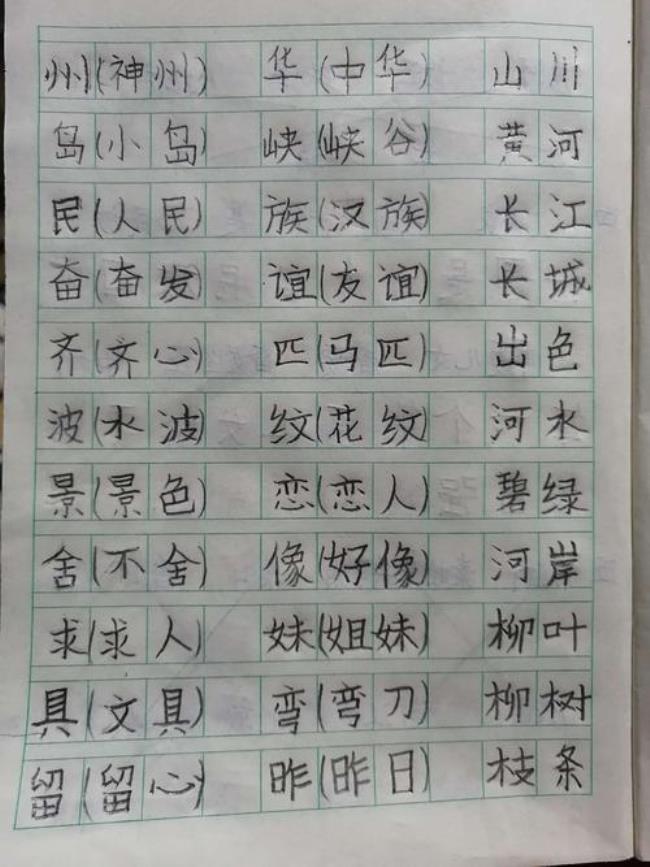 州(神州) 华(中华) 山川
岛(小岛) 峡(峡谷) 黄河
民(人民) 族(汉族) 长江
奋(奋发) 谊(友谊) 长城
齐(齐心) 匹(马匹) 出色
波(水波) 纹(花纹) 河水
景(景色) 恋(恋人) 碧绿
舍(不舍) 像(好像) 河岸
求(求人) 妹(姐妹) 柳叶
具(文具) 弯(弯刀) 柳树
留(留心) 昨(昨日) 枝条